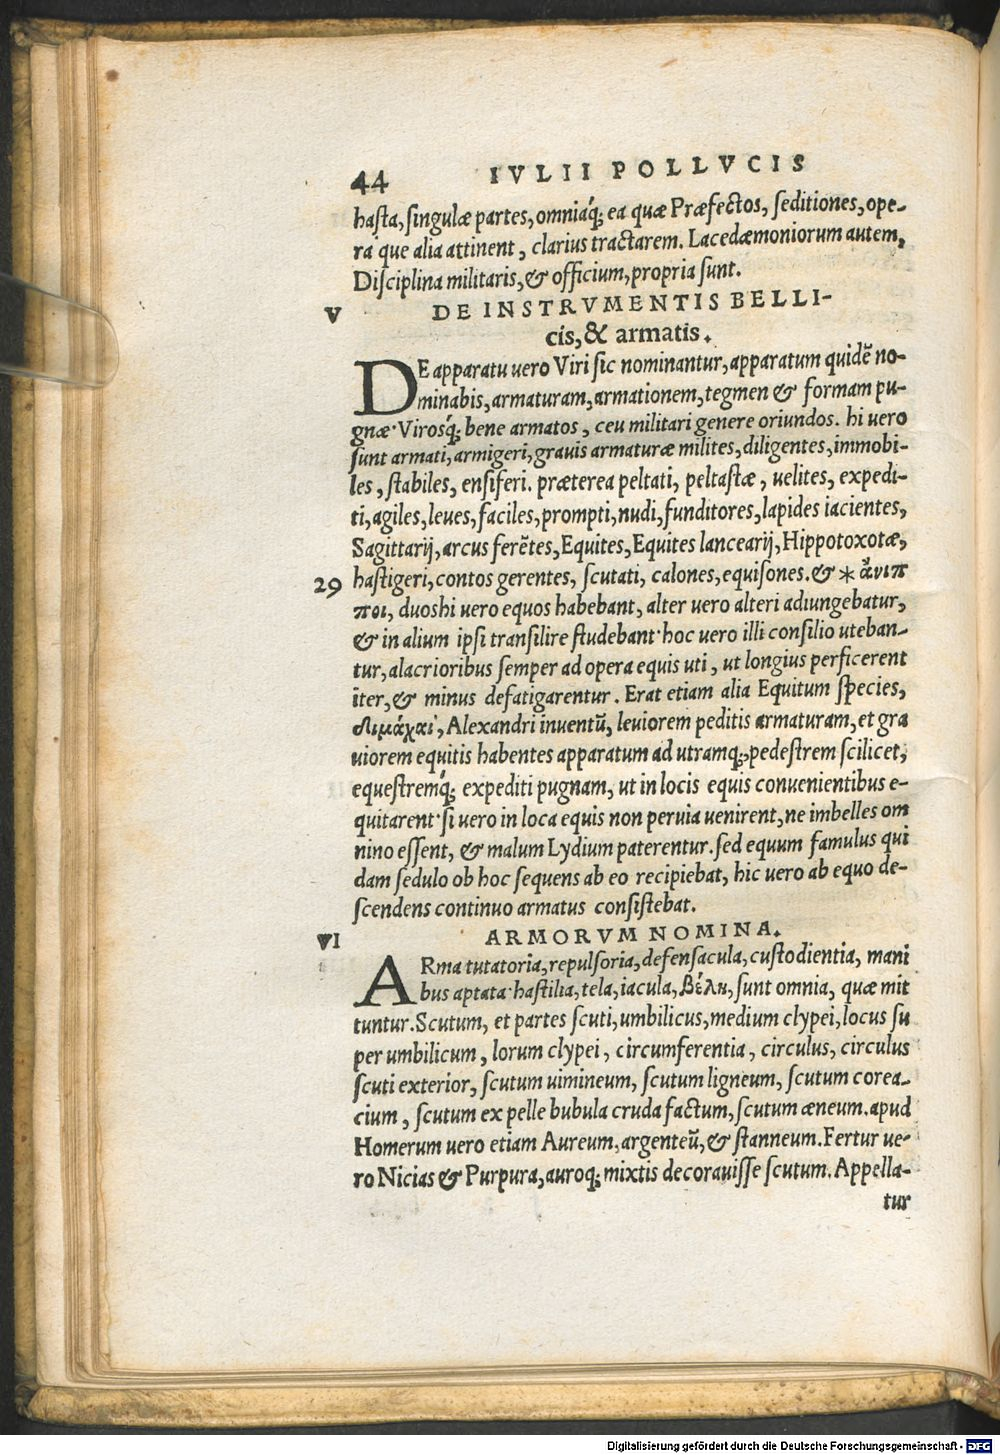 44 IVLII POLLVCIS
hasta, singulæ partes, omniaq́; ea quæ Præfectos, seditiones, ope-
ra que alia attinent, clarius tractarem. Lacedæmoniorum autem,
Disciplina militaris, & officium, propria sunt.
V DE INSTRVMENTIS BELLI-
cis, & armatis.
DE apparatu uero Viri sic nominantur, apparatum quidē no-
minabis, armaturam, armationem, tegmen & formam pu-
gnæ· Virosq́; bene armatos, ceu militari genere oriundos. hi uero
sunt armati, armigeri, grauis armaturæ milites, diligentes, immobi-
les, stabiles, ensiferi. præterea peltati, peltastæ, uelites, expedi-
ti, agiles, leues, faciles, prompti, nudi, funditores, lapides iacientes,
Sagittarij, arcus ferētes, Equites, Equites lancearij, Hippotoxotæ,
29 hastigeri, contos gerentes, scutati, calones, equisones. & * ἄνιπ
ποι, duos hi uero equos habebant, alter uero alteri adiungebatur,
& in alium ipsi transilire studebant· hoc uero illi consilio uteban-
tur, alacrioribus semper ad opera equis uti, ut longius perficerent
iter, & minus defatigarentur. Erat etiam alia Equitum species,
διμάχαι, Alexandri inuentū, leuiorem peditis armaturam, et gra
uiorem equitis habentes apparatum ad utramq;, pedestrem scilicet,
equestremq́; expediti pugnam, ut in locis equis conuenientibus e-
quitarent· si uero in loca equis non peruia uenirent, ne imbelles om
nino essent, & malum Lydium paterentur. sed equum famulus qui
dam sedulo ob hoc sequens ab eo recipiebat, hic uero ab equo de-
scendens continuo armatus consistebat.
VI ARMORVM NOMINA.
ARma tutatoria, repulsoria, defensacula, custodientia, mani
bus aptata· hastilia, tela, iacula, βέλη, sunt omnia, quæ mit
tuntur. Scutum, et partes scuti, umbilicus, medium clypei, locus su
per umbilicum, lorum clypei, circumferentia, circulus, circulus
scuti exterior, scutum uimineum, scutum ligneum, scutum corea-
cium, scutum ex pelle bubula cruda factum, scutum æneum. apud
Homerum uero etiam Aureum, argenteū, & stanneum. Fertur ue-
ro Nicias & Purpura, auroq; mixtis decorauisse scutum. Appella-
tur
Digitalisierung gefördert durch die Deutsche Forschungsgemeinschaft - DFG